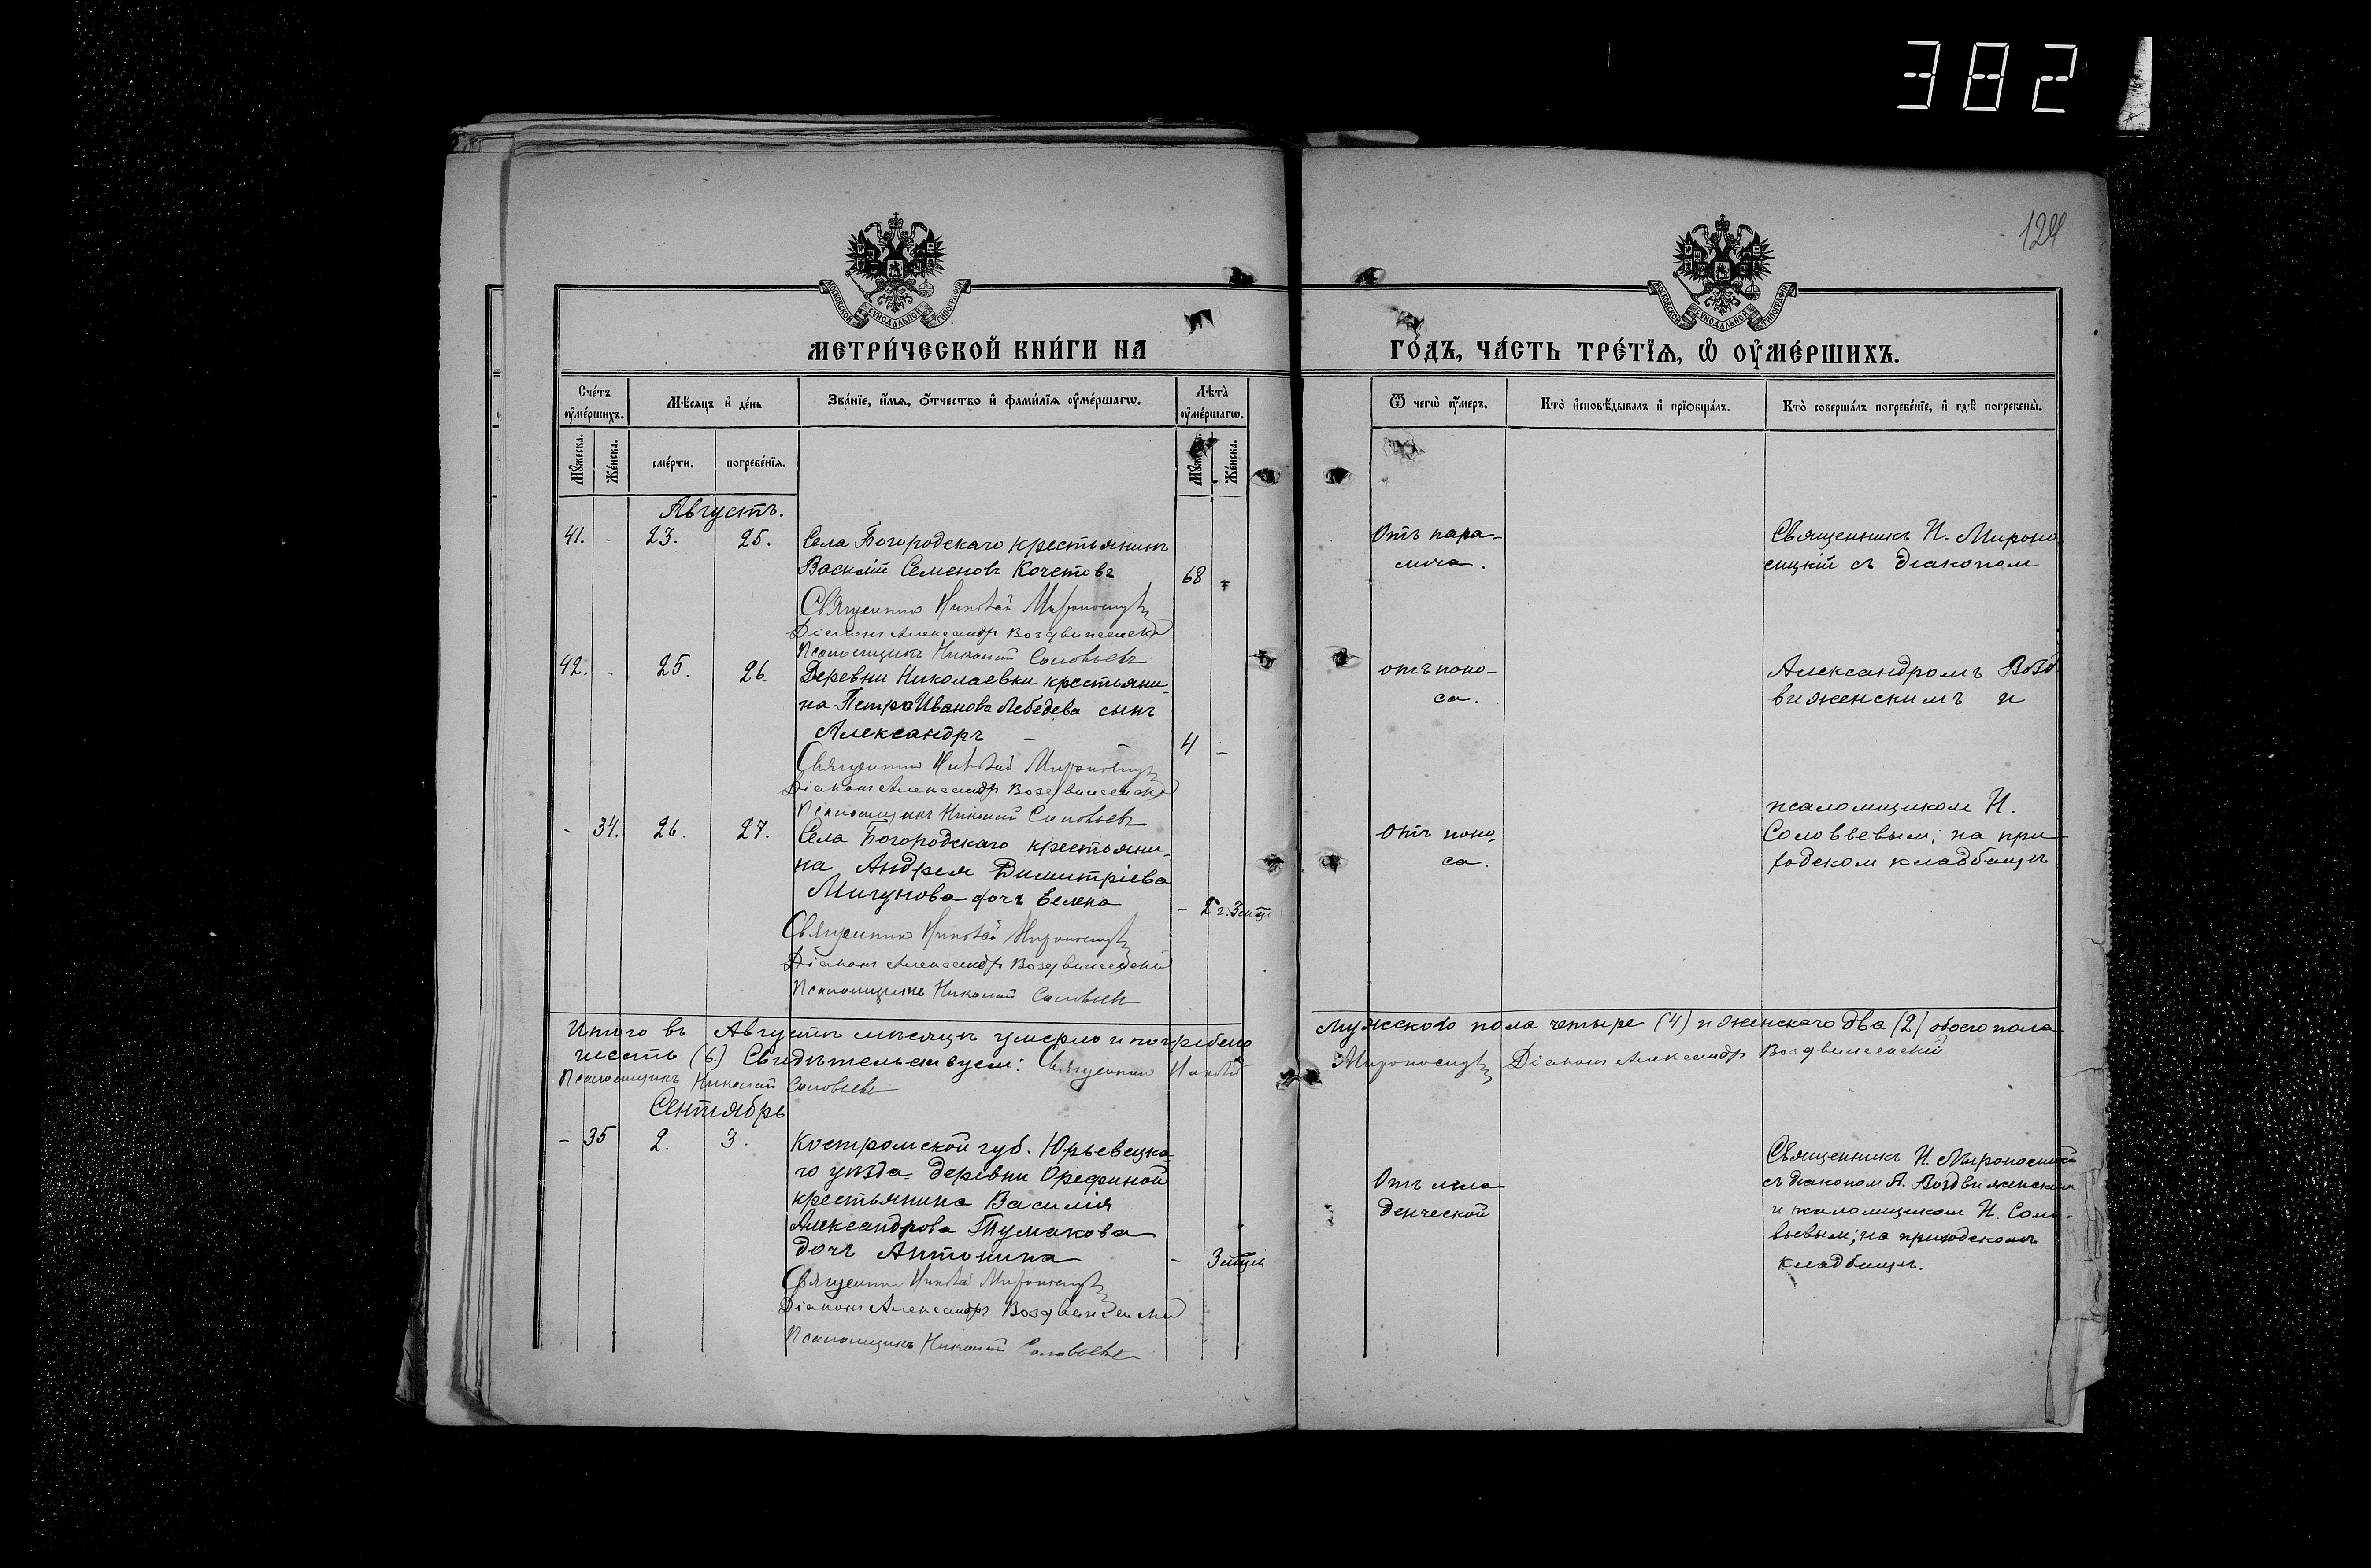 382
124
МОСКОВСКОЙ СѴНОДАЛЬНОЙ ТИПОГРАФІИ
МОСКОВСКОЙ СѴНОДАЛЬНОЙ ТИПОГРАФІИ
МЕТРИ́ЧЕСКОЙ КНИ́ГИ НА
ГО́ДЪ, ЧА́СТЬ ТРЕ́ТІѦ, Ѡ ОУ҆МЕ́РШИХЪ.
Сче́тъ оу҆ме́ршихъ.
Мѣсѧцъ и де́нь
Зва́нїе, и҆́мѧ, о҆́тчество и҆ фами́лїѧ оу҆ме́ршагѡ.
Лѣта̀ оу҆ме́ршагѡ.
Ѿ чегѡ̀ оу҆́меръ.
Кто̀ и҆сповѣ́дывалъ и҆ прїѡбща́лъ.
Кто̀ соверша́лъ погребе́нїе, и҆ гдѣ̀ погребены̀.
Мꙋ́жеска.
Же́нска.
сме́рти.
погребе́нїѧ.
Же́нска.
Августъ.
41. - 23. 25. Села Богородскаго крестьянинъ
Василій Семеновъ Кочетовъ 68
Священникъ Николай Мироносицкій
Діаконъ Александръ Воздвиженскій
Псаломщикъ Николай Соловьевъ
Отъ пара-
лича.
Священникъ Н. Мироно
сицкій съ діакономъ
42. - 25. 26. Деревни Николаевки крестьяни-
на Петра Иванова Лебедева сынъ
Александръ - 4 -
Священникъ Николай Мироносицкій
Діаконъ Александръ Воздвиженскій
Псаломщикъ Николай Соловьевъ
отъ поно-
са.
Александромъ Возд
виженскимъ и
- 34. 26. 27. Села Богородскаго крестьяни-
на Андрея Димитріева
Мигунова дочь Елена - 2 г. 3 мѣц.
Священникъ Николай Мироносицкій
Діаконъ Александръ Воздвиженскій
Псаломщикъ Николай Соловьевъ
Отъ поно-
са.
псаломщикомъ Н.
Соловьевым; на при
ходском кладбищѣ
Итого въ Августѣ мѣсяцѣ умерло и погребено мужескаго пола четыре (4) и женскаго два (2) обоего пола
шесть (6.) Свидѣтельствуем: Священникъ Николай Мироносицкій Діаконъ Александръ Воздвиженскій
Псаломщикъ Николай Соловьевъ
Сентябрь
- 35 2. 3. Костромской губ. Юрьевецка-
го уѣзда деревни
крестьянина Василія
Александрова Тумакова
дочь Антонина - 3 мѣц.
Священникъ Николай Мироносицкій
Діаконъ Александръ Воздвиженскій
Псаломщикъ Николай Соловьевъ
Отъ мла
денческой
Священникъ Н. Мироносицкій
съ діакономъ А. Воздвиженским
и псаломщиком Н. Соло-
вьевым; на приходскомъ
кладбищѣ.